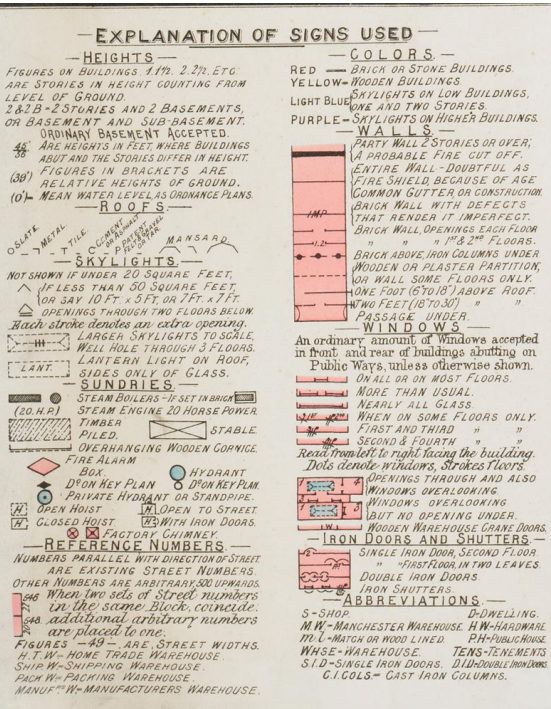 EXPLANATION OF SIGNS USED
HEIGHTS
FIGURES ON BUILDINGS. 1. 1½. 2. 2½, ETC.
ARE STORIES IN HEIGHT COUNTING FROM
LEVEL OF GROUND.
2 & 2 B = 2 STORIES AND 2 BASEMENTS,
OR BASEMENT AND SUB-BASEMENT.
ORDINARY BASEMENT ACCEPTED.
ARE HEIGHTS IN FEET, WHERE BUILDINGS
ABUT AND THE STORIES DIFFER IN HEIGHT.
(39') FIGURES IN BRACKETS ARE
RELATIVE HEIGHTS OF GROUND.
(0')= MEAN WATER LEVEL, AS ORDNANCE PLANS.
ROOFS
O SLATE. METAL. TILE. CEMENT OR ASPHALT P. PATENT FELT, GRAVEL OR TAR. MANSARD
SKYLIGHTS
NOT SHOWN IF UNDER 20 SQUARE FEET,
IF LESS THAN 50 SQUARE FEET,
OR SAY 10 FT. x 5 FT, OR 7 FT. x 7 FT.
OPENINGS THROUGH TWO FLOORS BELOW.
Each stroke denotes an extra opening.
LARGER SKYLIGHTS TO SCALE,
WELL HOLE THROUGH 3 FLOORS.
LANT. LANTERN LIGHT ON ROOF,
SIDES ONLY OF GLASS.
SUNDRIES
STEAM BOILERS - IF SET IN BRICK
(20. H.P.) STEAM ENGINE 20 HORSE POWER.
TIMBER
PILED.
STABLE.
OVERHANGING WOODEN CORNICE.
FIRE ALARM
BOX.
HYDRANT
Do ON KEY PLAN
Do ON KEY PLAN.
PRIVATE HYDRANT OR STANDPIPE.
H OPEN HOIST H OPEN TO STREET.
H CLOSED HOIST H WITH IRON DOORS.
FACTORY CHIMNEY.
REFERENCE NUMBERS.
NUMBERS PARALLEL WITH DIRECTION OF STREET
ARE EXISTING STREET NUMBERS.
OTHER NUMBERS ARE ARBITRARY, 500 UPWARDS.
When two sets of Street numbers
in the same Block, coincide,
additional arbitrary numbers
are placed to one.
FIGURES —49— ARE STREET WIDTHS.
H.T.W= HOME TRADE WAREHOUSE.
SHIP W= SHIPPING WAREHOUSE.
PACK W= PACKING WAREHOUSE.
MANUFRS W= MANUFACTURERS WAREHOUSE.
COLORS
RED — BRICK OR STONE BUILDINGS.
YELLOW= WOODEN BUILDINGS.
LIGHT BLUE SKYLIGHTS ON LOW BUILDINGS,
ONE AND TWO STORIES.
PURPLE= SKYLIGHTS ON HIGHER BUILDINGS.
WALLS
PARTY WALL 2 STORIES OR OVER,
A PROBABLE FIRE CUT OFF.
ENTIRE WALL - DOUBTFUL AS
FIRE SHIELD, BECAUSE OF AGE
COMMON GUTTER OR CONSTRUCTION.
IMP BRICK WALL WITH DEFECTS
THAT RENDER IT IMPERFECT.
BRICK WALL, OPENINGS EACH FLOOR
1.2! " " " 1ST & 2ND FLOORS.
BRICK ABOVE, IRON COLUMNS UNDER
WOODEN OR PLASTER PARTITION,
OR WALL SOME FLOORS ONLY.
ONE FOOT (6" TO 18") ABOVE ROOF.
TWO FEET (18" TO 30") " "
PASSAGE UNDER.
WINDOWS
An ordinary amount of Windows accepted
in front and rear of buildings abutting on
Public Ways, unless otherwise shown.
ON ALL OR ON MOST FLOORS.
MORE THAN USUAL.
NEARLY ALL GLASS.
WHEN ON SOME FLOORS ONLY.
FIRST AND THIRD " "
SECOND & FOURTH " "
Read from left to right facing the building.
Dots denote windows, Strokes floors.
OPENINGS THROUGH AND ALSO
WINDOWS OVERLOOKING.
WINDOWS OVERLOOKING
BUT NO OPENING UNDER.
W WOODEN WAREHOUSE CRANE DOORS.
IRON DOORS AND SHUTTERS.
SINGLE IRON DOOR, SECOND FLOOR
" " FIRST FLOOR, IN TWO LEAVES.
DOUBLE IRON DOORS.
IRON SHUTTERS.
ABBREVIATIONS.
S - SHOP. D = DWELLING.
M.W.= MANCHESTER WAREHOUSE. H.W= HARDWARE
m.l = MATCH OR WOOD LINED. P.H= PUBLIC HOUSE
WHSE = WAREHOUSE. TENS= TENEMENTS
S.I.D = SINGLE IRON DOORS. D.I.D= DOUBLE IRON DOORS
C.I. COLS.= CAST IRON COLUMNS.